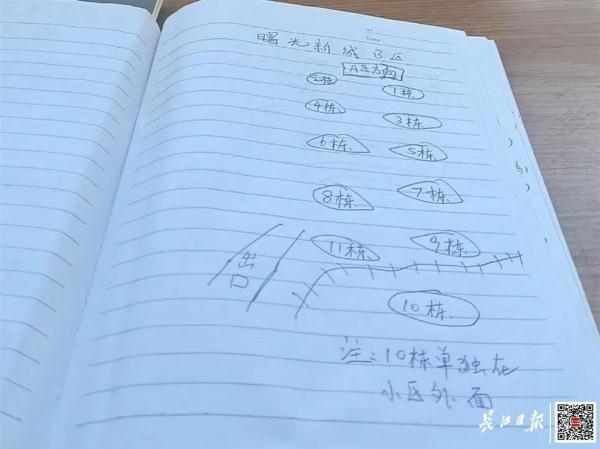 曙光新城B区
A区方向
2栋 1栋
4栋 3栋
6栋 5栋
8栋 7栋
11栋 9栋
出口
10栋
注:10栋单独在
小区外面
长江日报